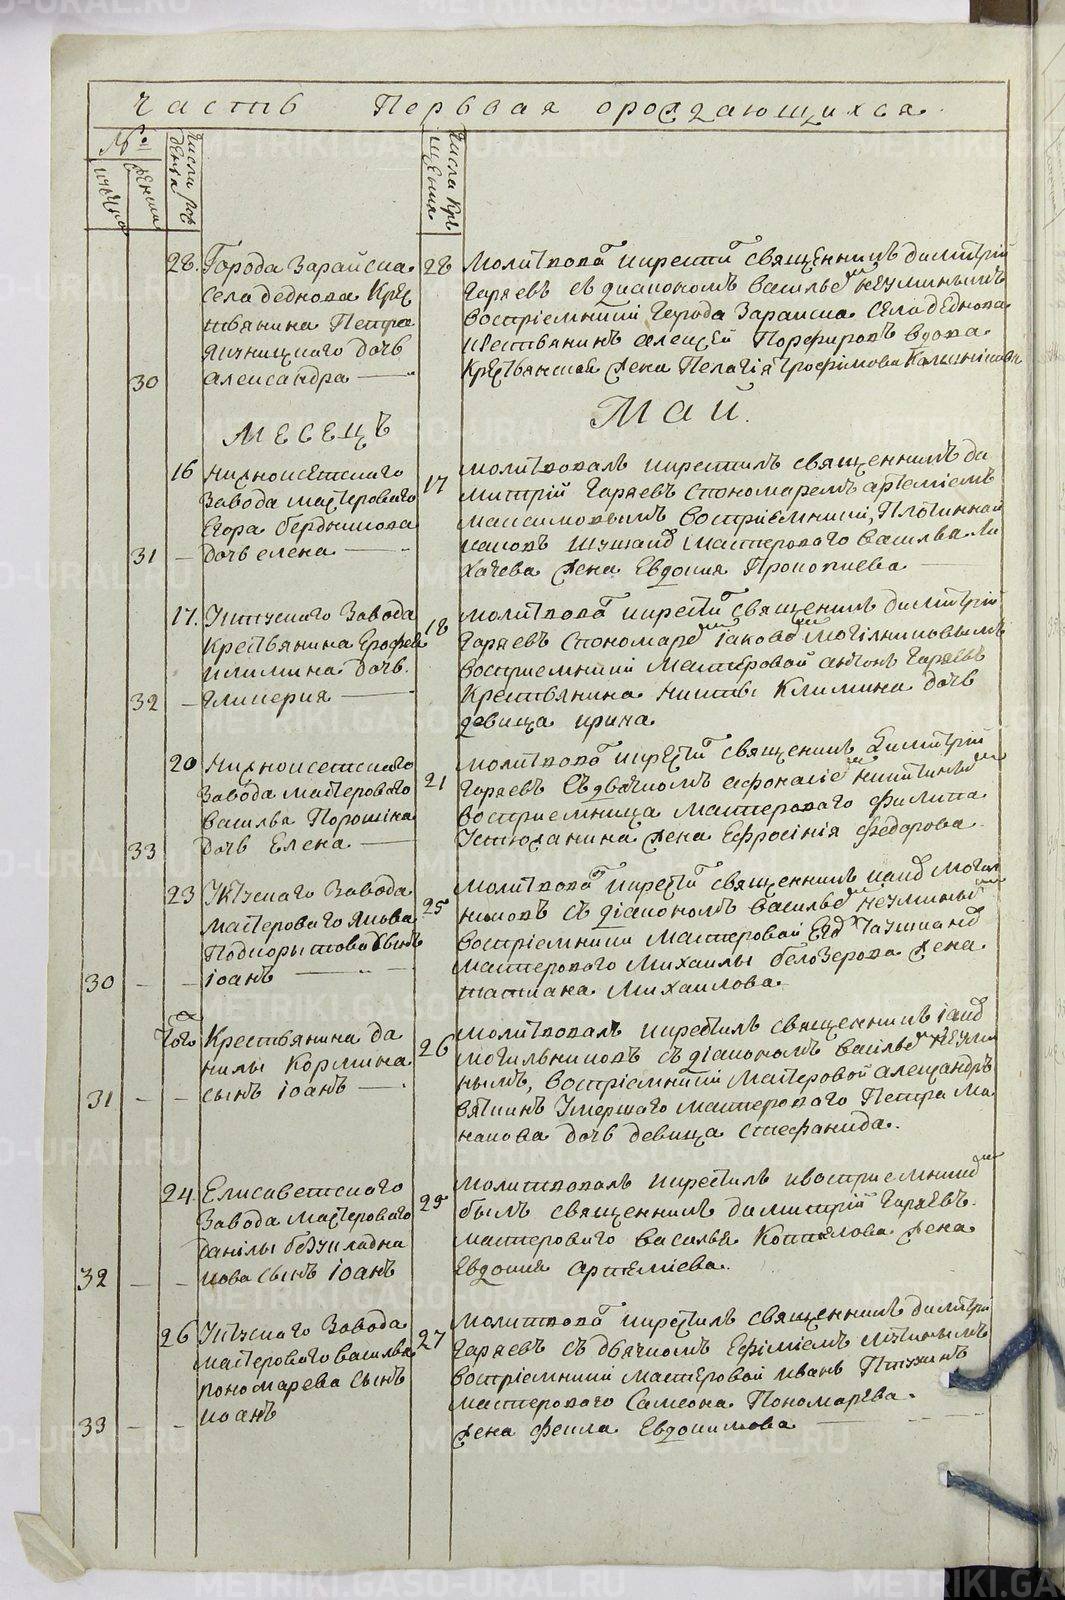 Часть Первая ораждающихся.
№
мужеска
женска
Числа рож
дения
Числа кре
щения
28. Города Зарайска
села деднова Кре
стьянина Петра
дочь
30 александра
28 Молитвова и крести священникъ димитрий
Гаряевъ съ диакономъ василье
восприемники Города Зарайска села деднова
алексей Порфировъ вдова
крестьянская жена Пелагия трофимова
Месецъ Май.
16 Нижноисетскаго
завода мастероваго
Егора бердникова
31 — дочь елена —
17 молитвовалъ и крестилъ священникъ ди
митрий Гаряевъ спономаремъ артемиемъ
максимовымъ восприемники, Плотинной
мастероваго василья Ли
хачева жена Евдокия Прокопиева
17. Уктускаго завода
Крестьянина Ерофея
климина дочь
32 — гликерия —
18 молитвова и крести священникъ димитрий
Гаряевъ спономаре иаково могилниковымъ
восприемники мастеровой антонъ Гаряевъ
Крестьянина Никиты Климина дочь
девица ирина
20 Нижноисетскаго
завода мастероваго
василья Порошина
33 дочь Елена —
21 молитвова и крести священникъ Димитрий
Гаряевъ съ дьячкомъ афонасие никитины
восприемница мастероваго филипа
Устюжанина жена Ефросиния федорова
23 Уктускаго завода
мастероваго Якова
Подкорытова сынъ
30 — — иоанъ —
25 молитвова и крести священникъ иоан могил
никовъ съ диакономъ василье
восприемники мастеровой
мастероваго Михаилы белозерова жена
татиана Михаилова.
Того Крестьянина да
нилы Кормина
31 — — сынъ иоанъ —
26 молитвовалъ и крестилъ священникъ иоан
могильниковъ съ диакономъ василье
нымъ, восприемники мастеровой александръ
вяткинъ умершаго мастероваго Петра Ма
накова дочь девица стефанида.
24. Елисаветскаго
завода мастероваго
данилы безукладни
32 — — кова сынъ иоанъ
25 молитвовалъ и крестилъ и восприемник
былъ священникъ димитрий Гаряевъ.
мастероваго василья Коптелова жена
Евдокия артемиева.
26 Уктускаго завода
мастероваго василья
пономарева сынъ
33 — — иоанъ
27 молитвова и крестилъ священникъ димитрий
Гаряевъ съ дьячкомъ Ефимиемъ
восприемники мастеровой иванъ Птухинъ
мастероваго Самсона Пономарева.
жена фекла Евдокимова